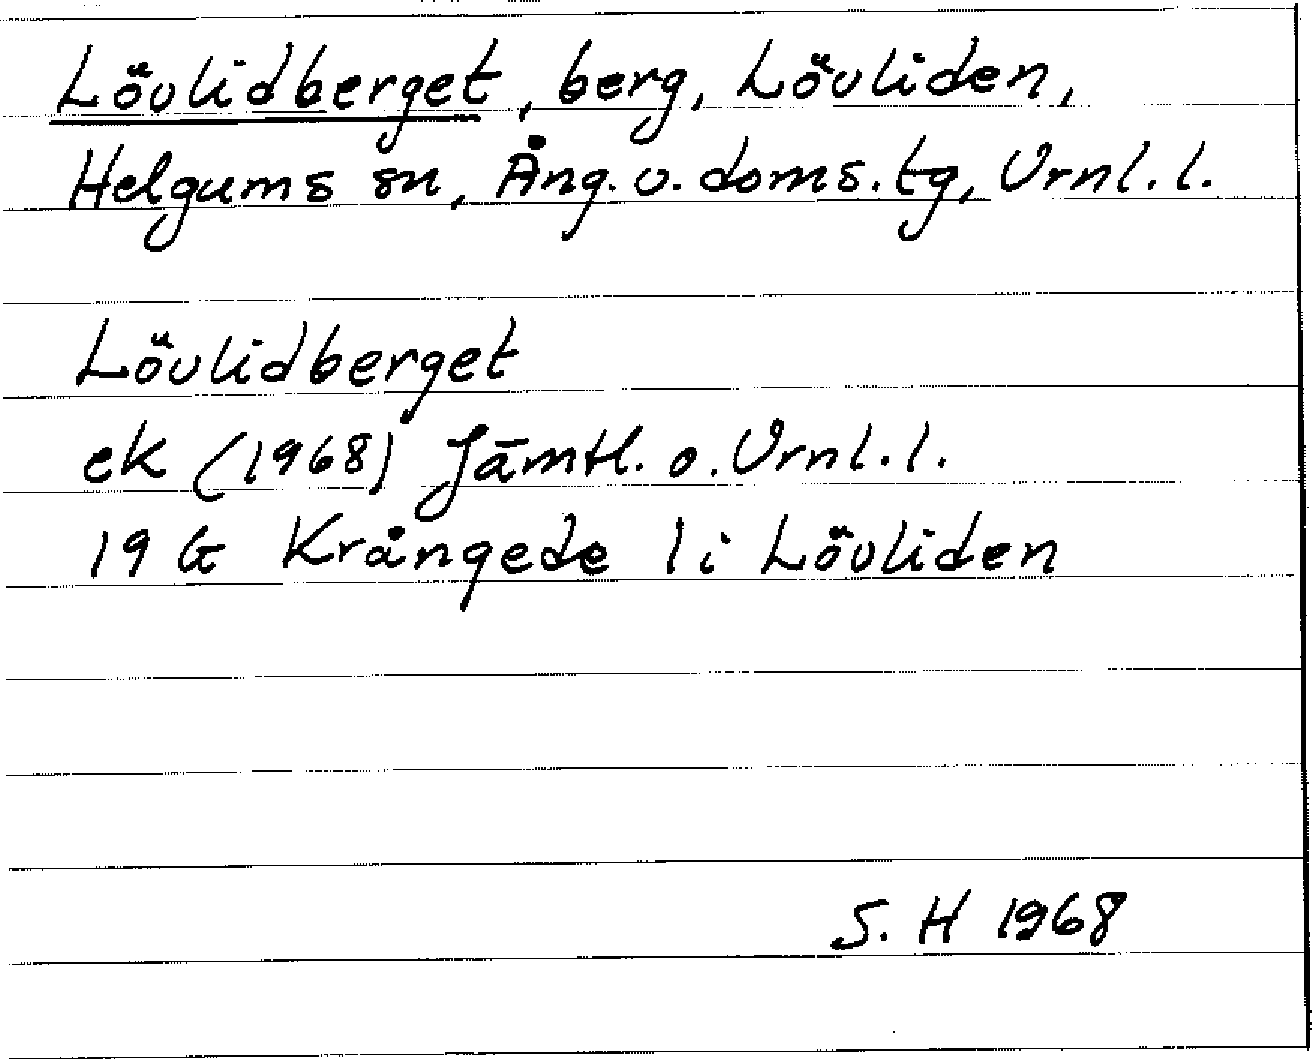 Lövlidberget, berg, Lövliden,
Helgums sn, Ång. v. doms. tg, Vrnl. l.
Lövlidberget
ek (1968) Jämtl. o. Vrnl. l.
19 G Krångede 1 i Lövliden
S. H 1968